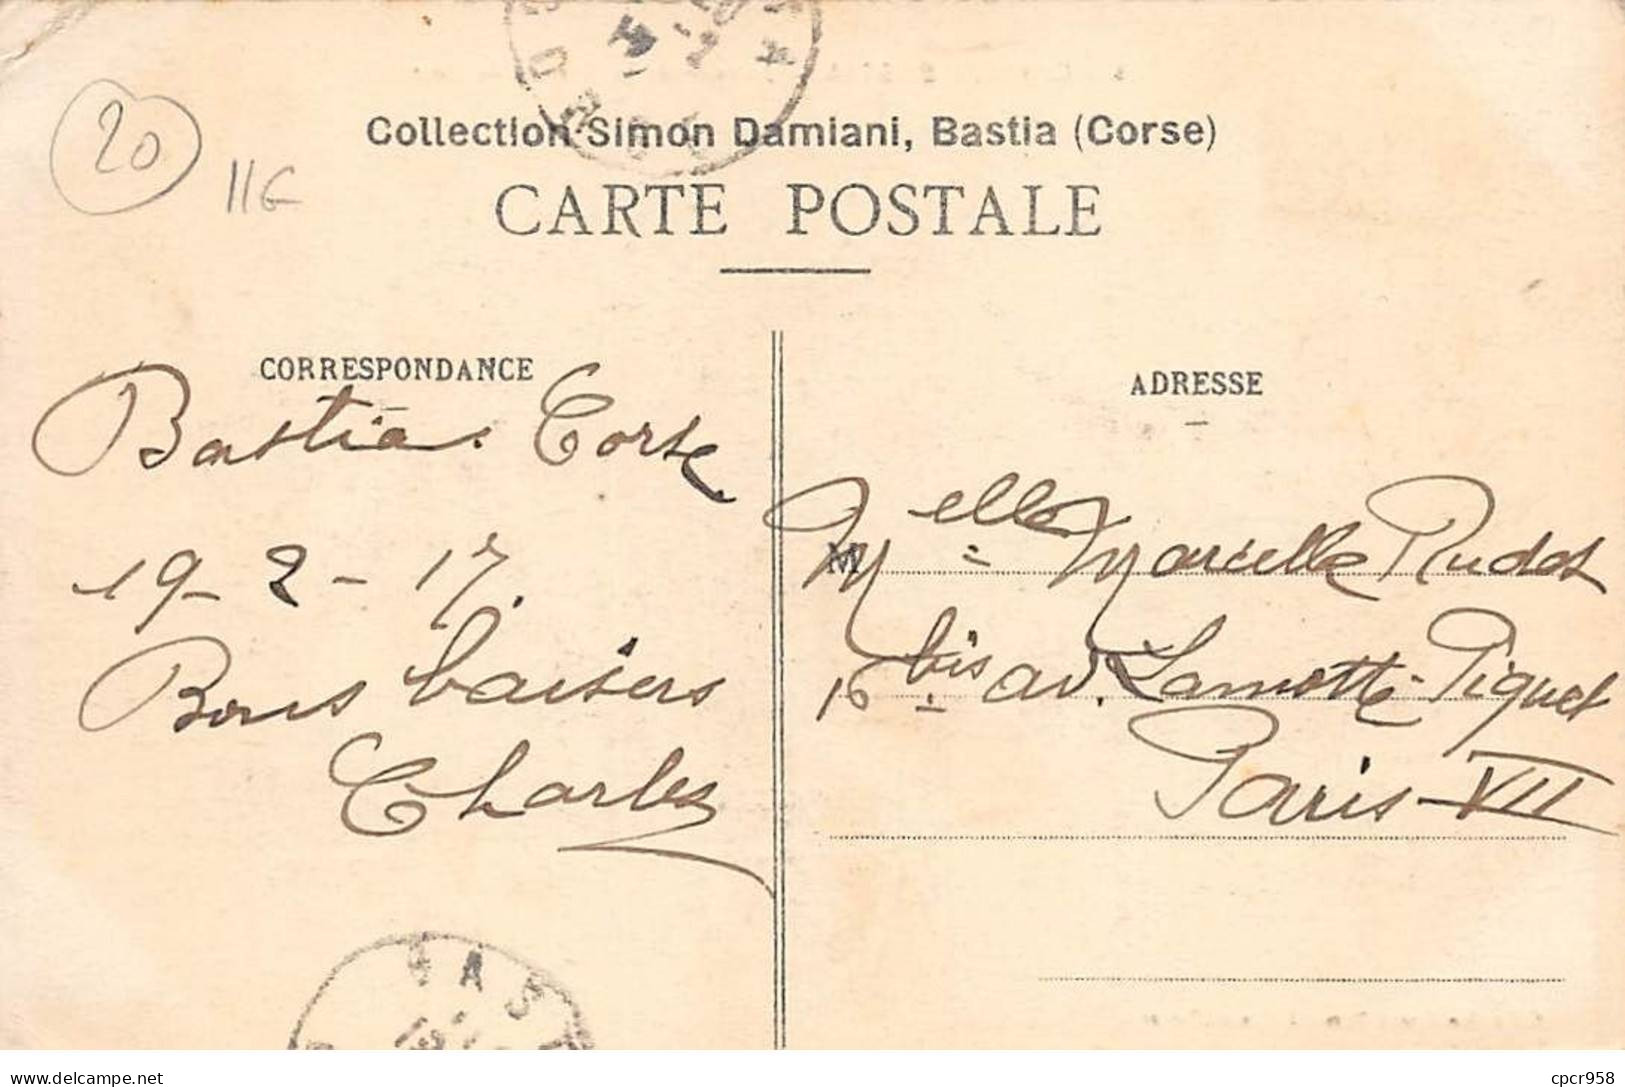 20
11G
Collection Simon Damiani, Bastia (Corse)
CARTE POSTALE
CORRESPONDANCE
ADRESSE
Bastia. Corse
19 - 2 - 17
Bons baisers
Charles
M
Melle Marcelle Rudot
16 bis av. Lamotte-Piquet
Paris-VII
BAST
www.delcampe.net
cpcr958